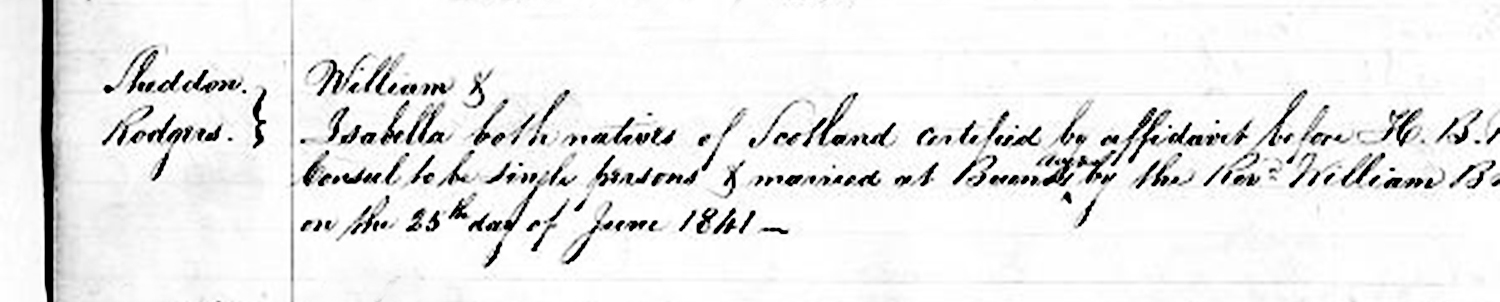 Sheddon. William &
Rodgers. Isabella both natives of Scotland certified by affidavit before H. B.
Consul to be single persons & married at Buenos Ayres by the Revd William
on the 25th day of June 1841 —